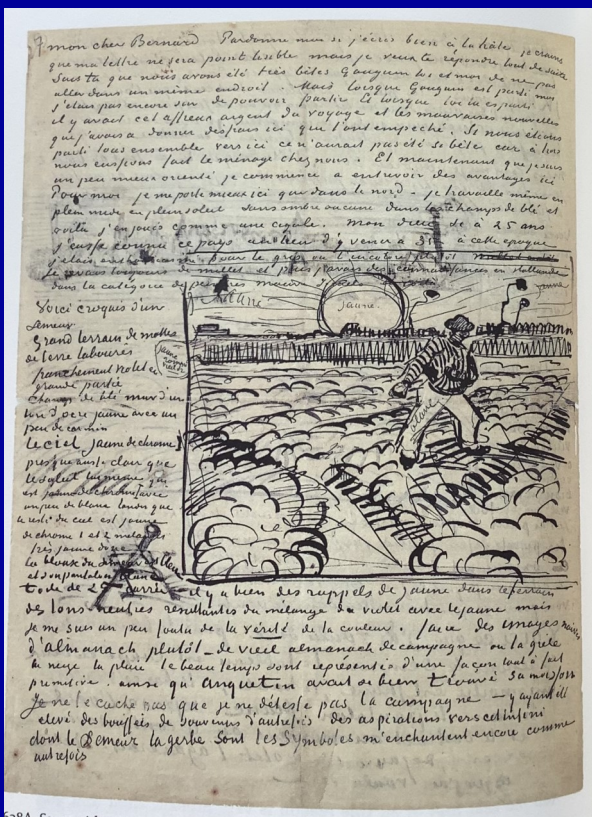 7
mon cher Bernard Pardonne moi si j'écris bien à la hâte, je crains
que ma lettre ne sera point lisible mais je veux te répondre tout de suite
Sais tu que nous avons été très bêtes Gauguin toi et moi de ne pas
aller dans un même endroit. Mais lorsque Gauguin est parti moi
j'étais pas encore sûr de pouvoir partir Et lorsque toi tu es parti
il y avait cet affreux argent du voyage et les mauvaises nouvelles
que j'avais à donner des frais ici qui l'ont empeché. Si nous étions
parti tous ensemble vers ici ce n'aurait pas été si bête car à trois
nous eussions fait le ménage chez nous. Et maintenant que je suis
un peu mieux orienté je commence à entrevoir des avantages ici
Pour moi je me porte mieux ici que dans le nord - je travaille même en
plein midi en plein soleil sans ombre aucune dans les champs de blé et
voilà j'en jouis comme une cigale. mon dieu si à 25 ans
j'eusse connu ce pays au lieu d'y venir à 35 - à cette epoque
pour le gris ou l'incolore plutôt
je rêvais toujours de millet et puis j'avais des connaissances en Hollande
dans la catégorie de peintres mauve israels
jaune
Voici croquis d'un
semeur.
Grand terrain de mottes
de terre labourés
franchement violet en
grande partie
Champ de blé mur d'un
ton d'ocre jaune avec un
peu de carmin
Le ciel jaune de chrome 1
presque aussi clair que
le soleil lui même qui
est jaune de chrome 1 avec
un peu de blanc tandis que
le reste du ciel est jaune
de chrome 1 et 2 mélangés
très jaune donc
La blouse du semeur est bleue
et son pantalon blanc
toile de 25 carrée il y a bien des rappels de jaune dans le terrain
des tons neutres resultantes du mélange du violet avec le jaune mais
je me suis un peu foutu de la vérité de la couleur. faire des images naives
d'almanach plutôt - de vieil almanach de campagne ou la grêle
la neige la pluie le beau temps sont représentés d'une façon tout à fait
primitive. ainsi qu'Anquetin avait si bien trouvé sa moisson
Je ne te cache pas que je ne déteste pas la campagne - y ayant été
elevé - des bouffées de souvenirs d'autrefois des aspirations vers cet infini
dont le Semeur la gerbe sont les symboles m'enchantent encore comme
autrefois
jaune
blanc